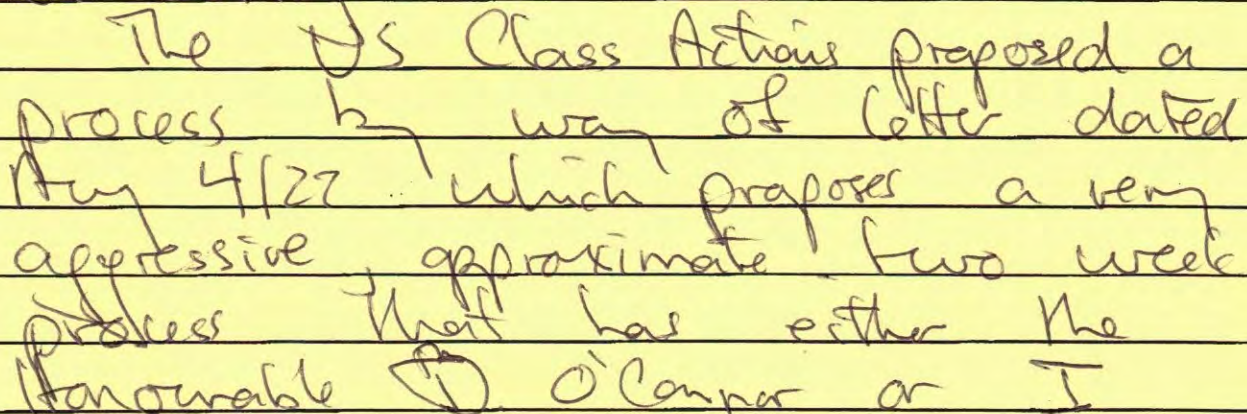 The US Class Actions proposed a
process by way of letter dated
Aug 4/22 which proposes a very
aggressive, approximate two week
process that has either the
Honourable D O'Connor or I